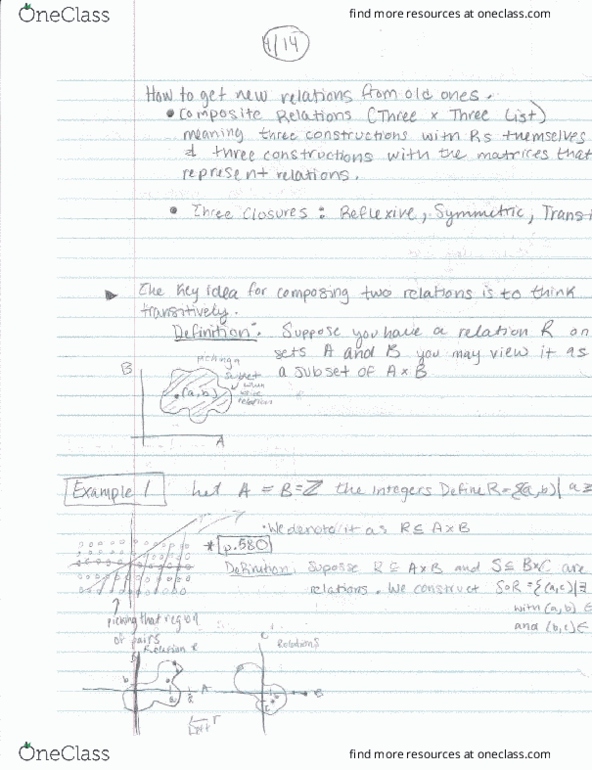 OneClass
find more resources at oneclass.com
4/14
How to get new relations from old ones.
• Composite Relations (Three x Three List)
meaning three constructions with Rs themselves
& three constructions with the matrices that
represent relations.
• Three Closures: Reflexive, Symmetric, Transi
The key idea for composing two relations is to think
transitively.
Definition: Suppose you have a relation R on
sets A and B you may view it as
a subset of A x B
B
picking a
subset
when
relation
(a,b)
A
Example 1 Let A = B = ℤ the integers Define R = {(a,b) | a ≥
• We denote it as R ⊆ A x B
* p.580
Definition. Supposse R ⊆ A x B and S ⊆ B x C are
relations. We construct S∘R = {(a,c) | ∃
with (a,b) ∈
and (b,c) ∈
picking that region
of pairs
Relation R
Relation S
b
a
A
C
B
c
OneClass
find more resources at oneclass.com